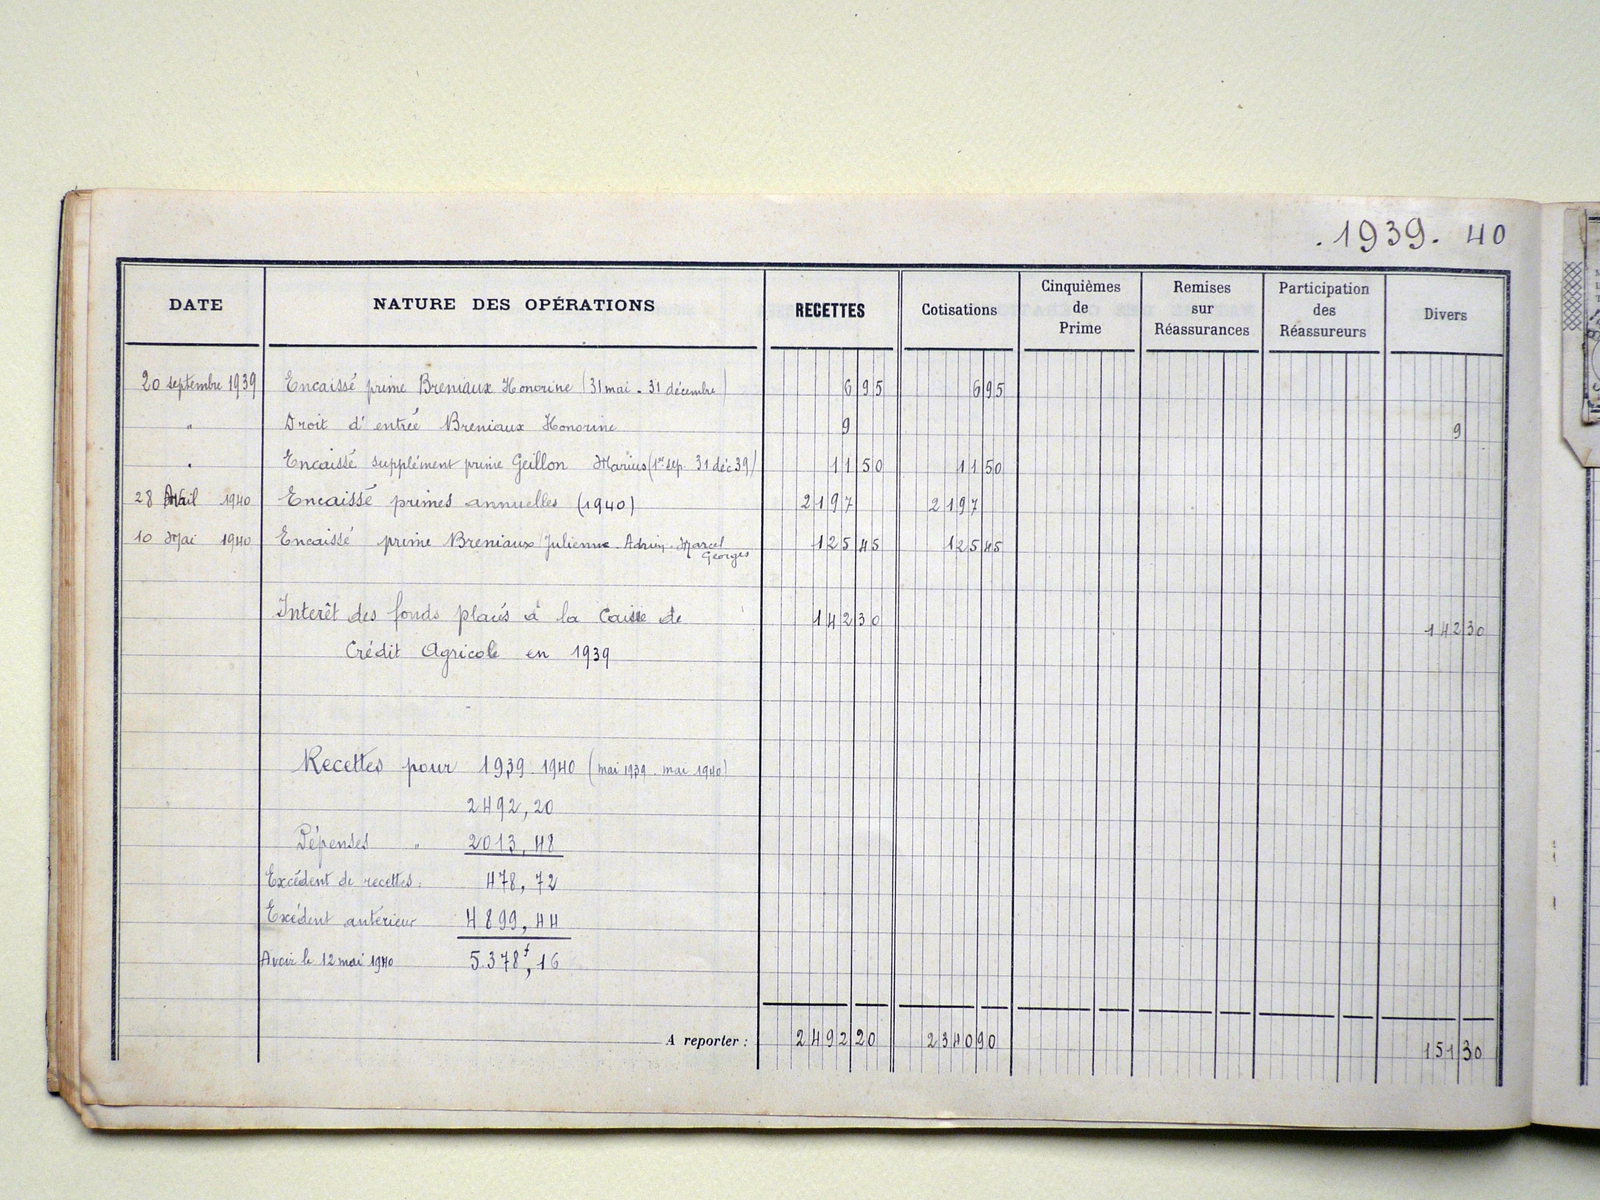 .1939. 40
DATE NATURE DES OPÉRATIONS RECETTES Cotisations Cinquièmes de Prime Remises sur Réassurances Participation des Réassureurs Divers
20 septembre 1939 Encaissé prime Breniaux Honorine (31 mai - 31 décembre) 6 95 6 95
" Droit d'entrée Breniaux Honorine 9 9
" Encaissé supplément prime Geillon Marius (1er sep. 31 déc 39) 11 50 11 50
28 Avril 1940 Encaissé primes annuelles (1940) 2197 2197
10 Mai 1940 Encaissé prime Breniaux Julienne Adrien. Marcel 125 45 125 45
Georges
Interêt des fonds placés à la Caisse de 142 30 142 30
Crédit Agricole en 1939
Recettes pour 1939.1940 (mai 1939. mai 1940)
2492,20
Dépenses " 2013,48
Excédent de recettes: 478,72
Exédent antérieur 4899,44
Avoir le 12 mai 1940 5.378f,16
A reporter : 2492 20 2340 90 151 30